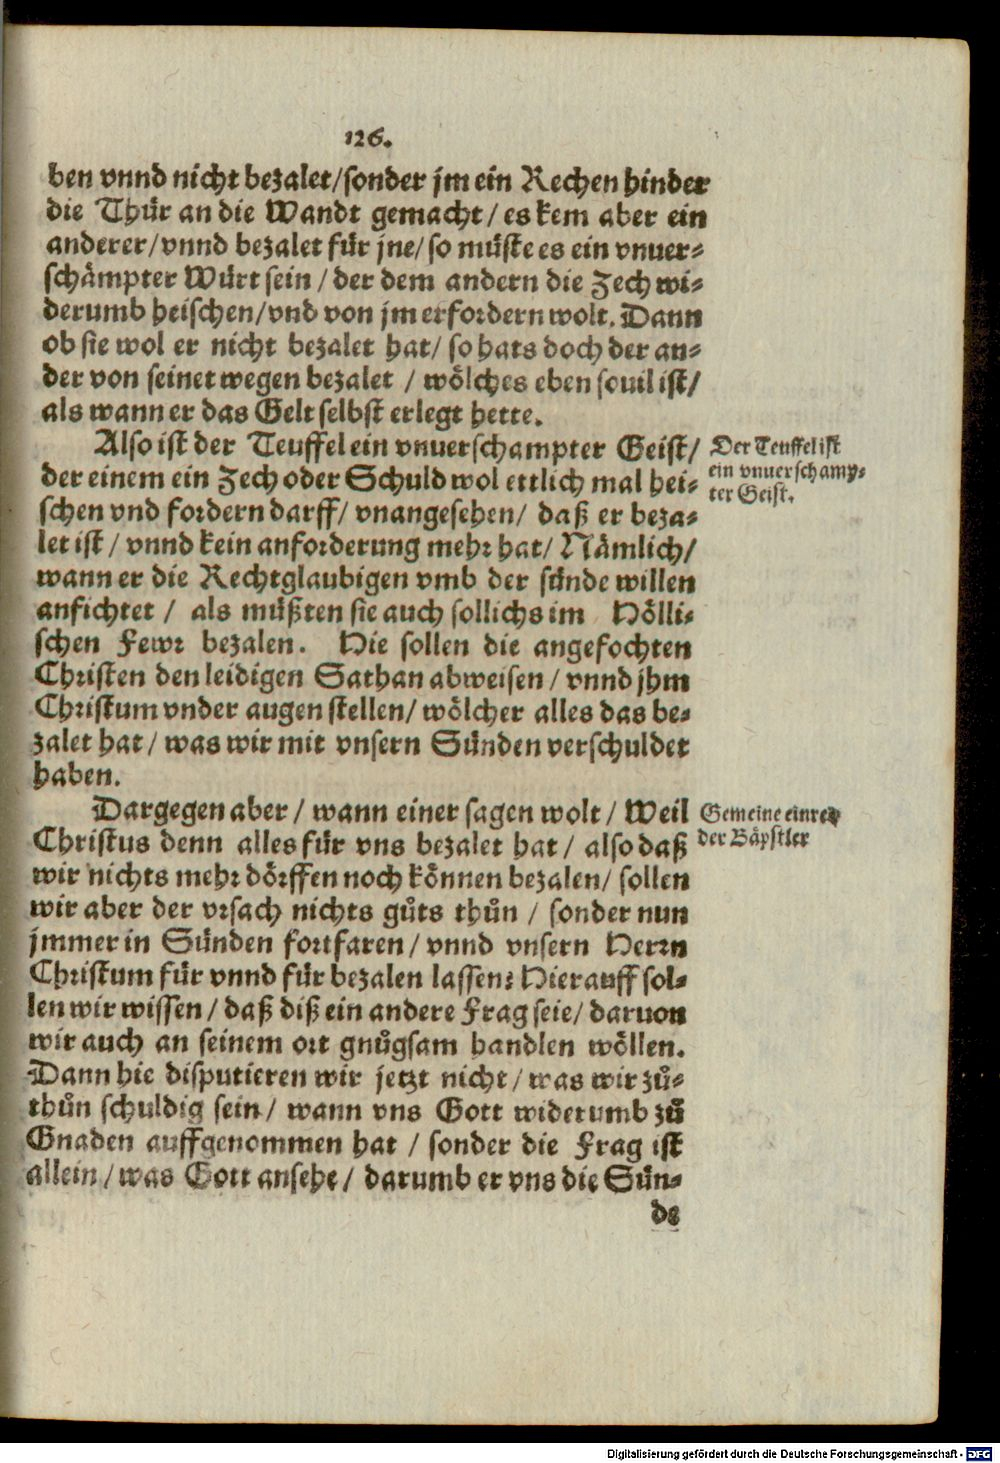 126.
ben vnnd nicht bezalet/sonder jm ein Rechen hinder
die Thür an die Wandt gemacht/ es kem aber ein
anderer/vnnd bezalet für jne/ so müste es ein vnuer-
schämpter Würt sein/ der dem andern die Zech wi-
derumb heischen/vnd von jm erfordern wolt. Dann
ob sie wol er nicht bezalet hat/ so hats doch der an-
der von seinet wegen bezalet / wölches eben souil ist/
als wann er das Gelt selbst erlegt hette.
Also ist der Teuffel ein vnuerschampter Geist/
der einem ein Zech oder Schuld wol ettlich mal hei-
schen vnd fordern darff/ vnangesehen/ daß er beza-
let ist/ vnnd kein anforderung mehr hat/ Nämlich/
wann er die Rechtglaubigen vmb der sünde willen
anfichtet / als müßten sie auch sollichs im Hölli-
schen Fewr bezalen. Hie sollen die angefochten
Christen den leidigen Sathan abweisen/ vnnd jhm
Christum vnder augen stellen/ wölcher alles das be-
zalet hat/ was wir mit vnsern Sünden verschuldet
haben.
Der Teuffel ist
ein vnuerschamp-
ter Geist.
Dargegen aber / wann einer sagen wolt/ Weil
Christus denn alles für vns bezalet hat / also daß
wir nichts mehr dörffen noch können bezalen/ sollen
wir aber der vrsach nichts gůts thůn / sonder nun
jmmer in Sünden fortfaren/ vnnd vnsern Herrn
Christum für vnnd für bezalen lassen: Hierauff sol-
len wir wissen/ daß diß ein andere Frag seie/ daruon
wir auch an seinem ort gnůgsam handlen wöllen.
Dann hie disputieren wir jetzt nicht/ was wir zů-
thůn schuldig sein/ wann vns Gott widerumb zů
Gnaden auffgenommen hat / sonder die Frag ist
allein/was Gott ansehe/ darumb er vns die Sün-
de
Gemeine einred
der Bäpstler
Digitalisierung gefördert durch die Deutsche Forschungsgemeinschaft - DFG